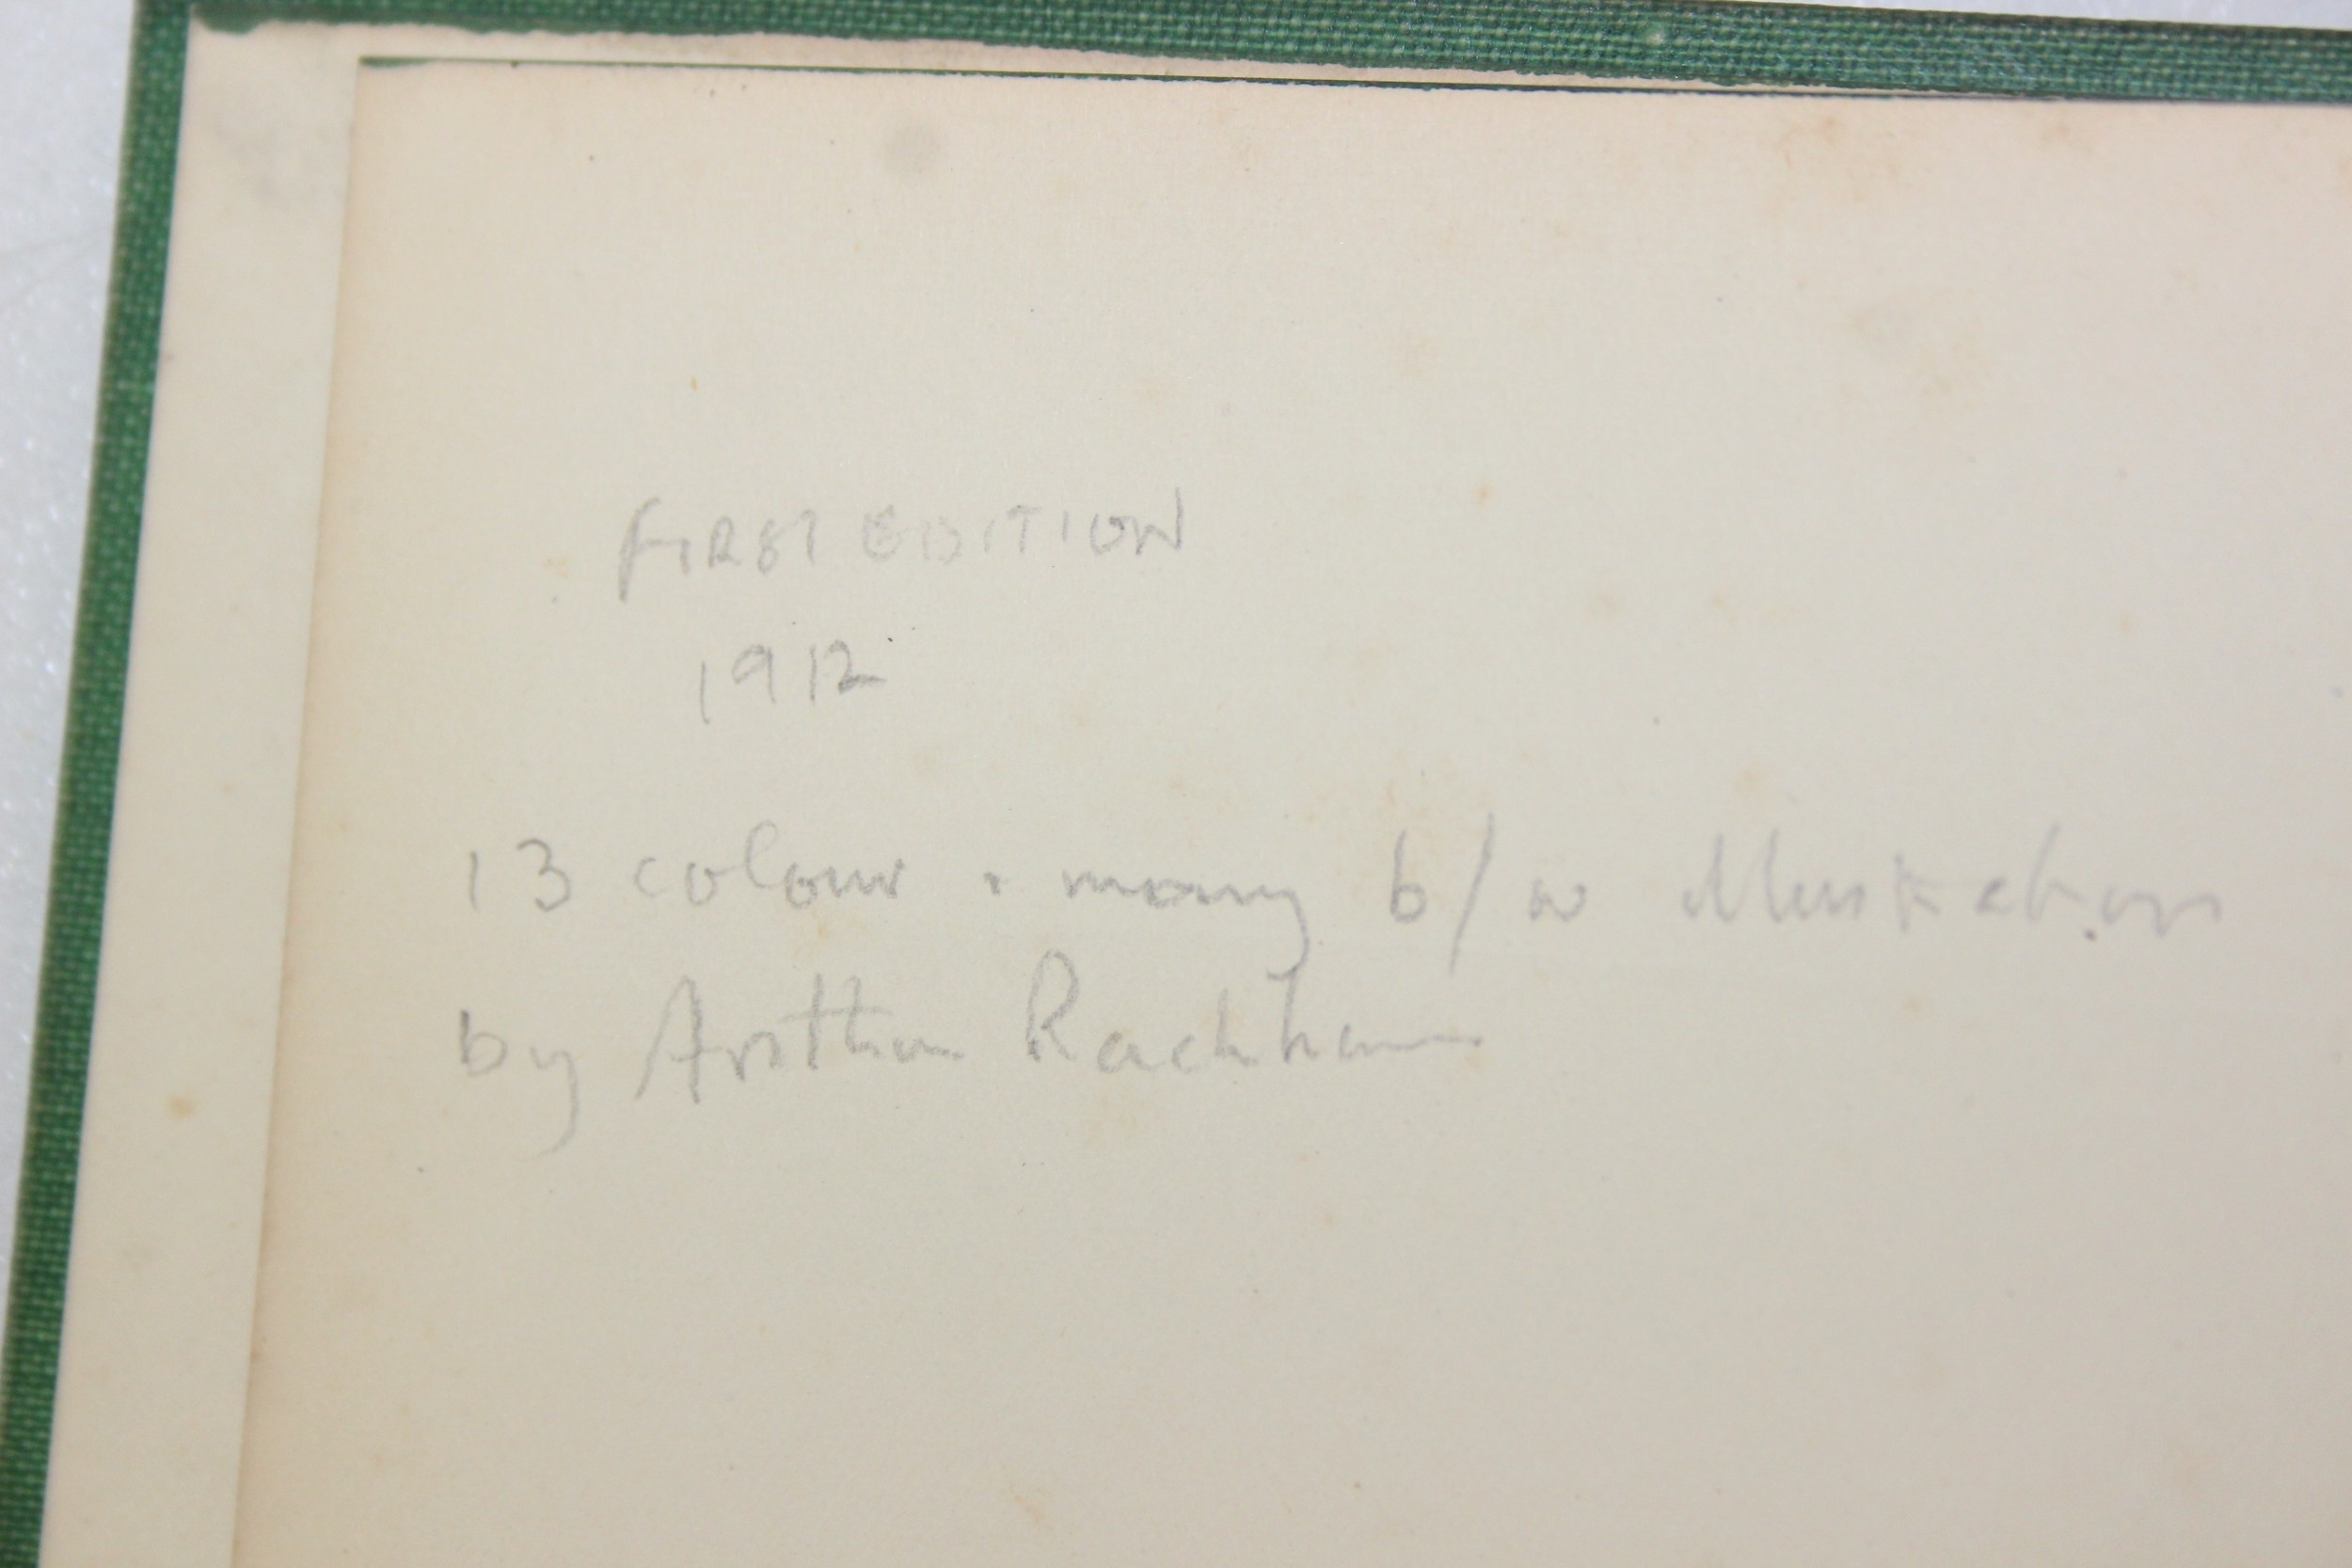 FIRST EDITION
1912
13 colour + many b/w illustrations
by Arthur Rackham